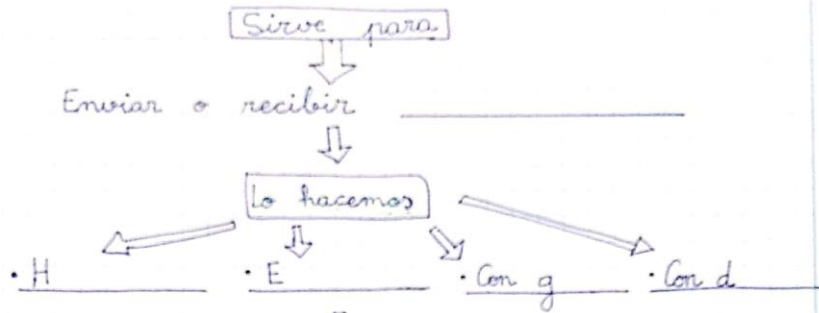 Sirve para
Enviar o recibir
Lo hacemos
· H · E · Con g · Con d